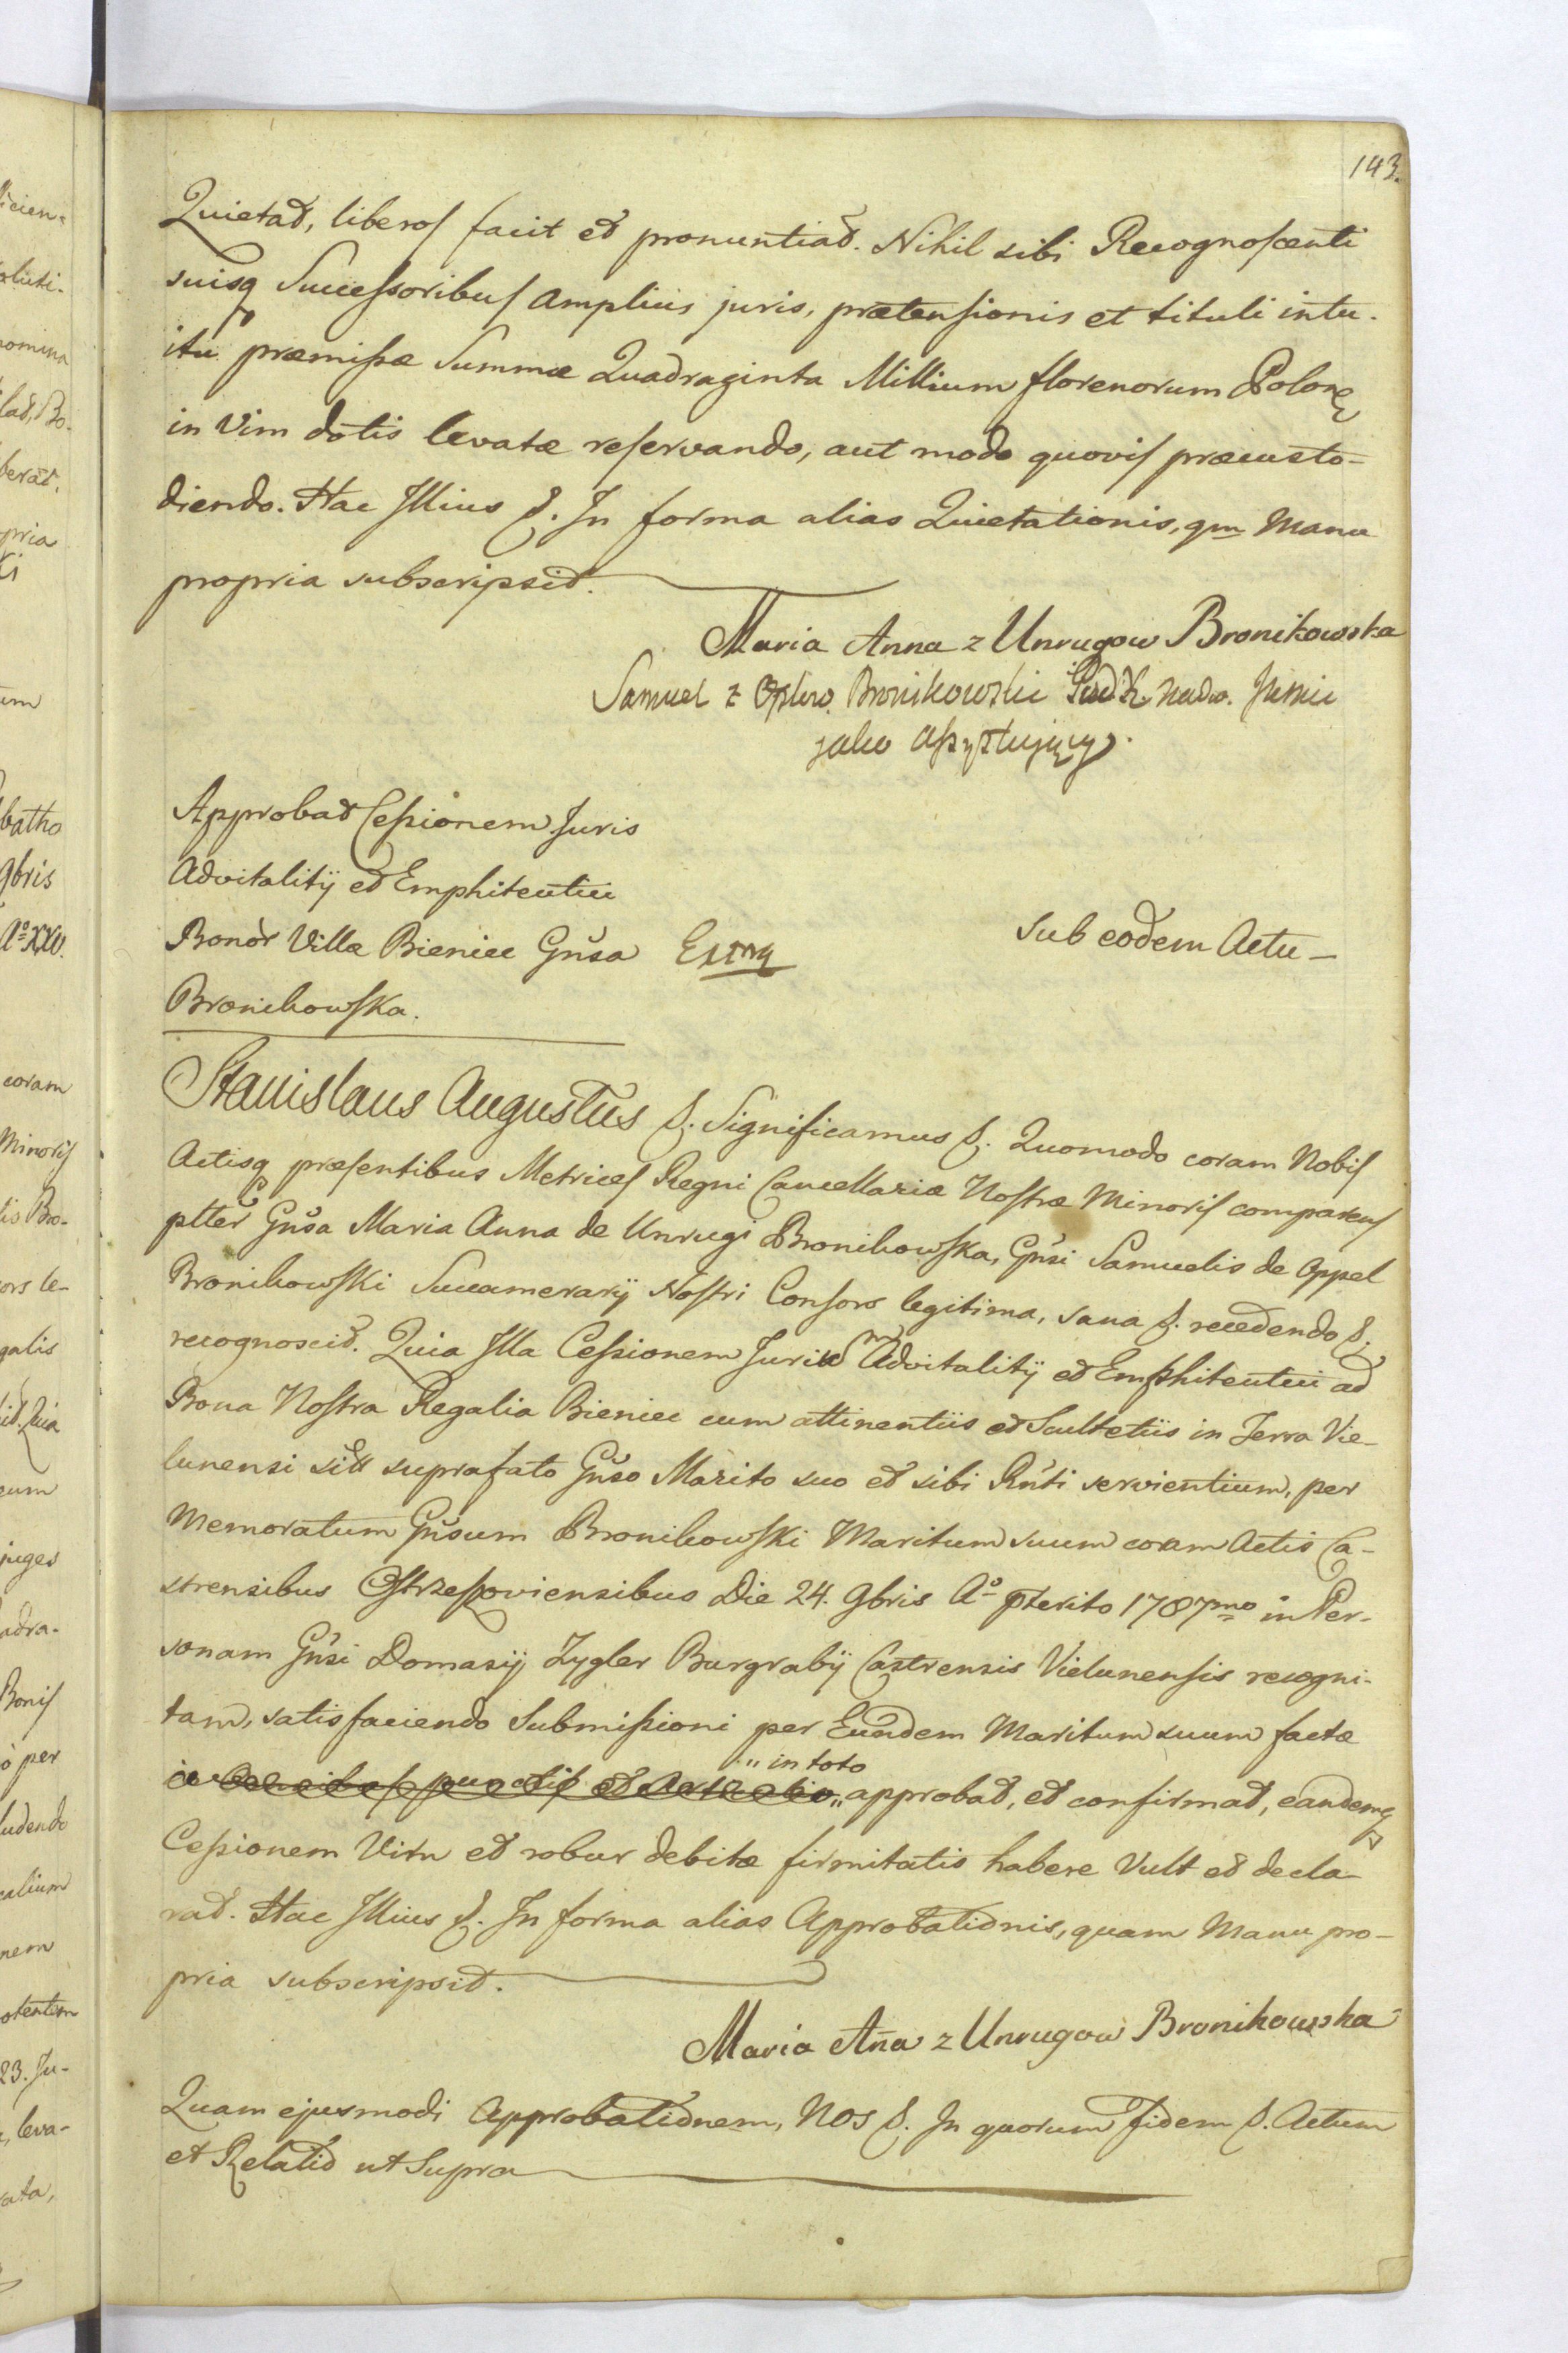 143.
Quietat, liberos facit et pronuntiat. Nihil sibi Recognoscenti
suisq Successoribus amplius juris, prætensionis et tituli intu-
itu præmissæ Summæ Quadraginta Millium florenorum Polon
in Vim dotis levatæ reservando, aut modo quovis præcusto-
diendo. Hac Illius &. In forma alias Quietationis, qm Manu
propria subscripsit.
Maria Anna z Unrugow Bronikowska
Samuel z Bronikowski
jako assystujący.
Approbat Cessionem Juris
Advitalitÿ et Emphiteutici
Bonor Villæ Bieniec Gnsa Extrq
sub eodem Actu –
Bronikowska.
Stanislaus Augustus &. Significamus &. Quomodo coram Nobis
Actisq præsentibus Metrices Regni Cancellariæ Nostræ Minoris comparens
plter Gnsa Maria Anna de Unrugi Bronikowska, Gnsi Samuelis de Oppel
Bronikowski Succamerarÿ Nostri Consors legitima, sana &. recedendo &.
recognoscit. Quia Illa Cessionem Juris Advitalitÿ et Emphiteutici ad
Bona Nostra Regalia Bieniec cum attinentiis et Scultetiis in Terra Vie-
lunensi sitt suprafato Gnso Marito suo et sibi Rnti servientium, per
Memoratum Gnsum Bronikowski Maritum suum coram Actis Ca-
strensibus Ostrzeszoviensibus Die 24. 9bris Aº pterito 1787mo in Per-
sonam Gnsi Domasÿ Zygler Burgrabÿ Castrensis Vielunensis recogni-
tam, satisfaciendo Submissioni per Eundem Maritum suum factæ
„ in toto
in omnibus punctis et Articulis „ approbat, et confirmat, eandemq
Cessionem Vim et robur debitæ firmitatis habere Vult et decla-
rat. Hac Illius &. In forma alias Approbationis, quam Manu pro-
pria subscripsit.
Maria Aña z Unrugow Bronikowska
Quam ejusmodi Approbationem, NOS &. In quorum Fidem &. Actum
et Relatio ut Supra